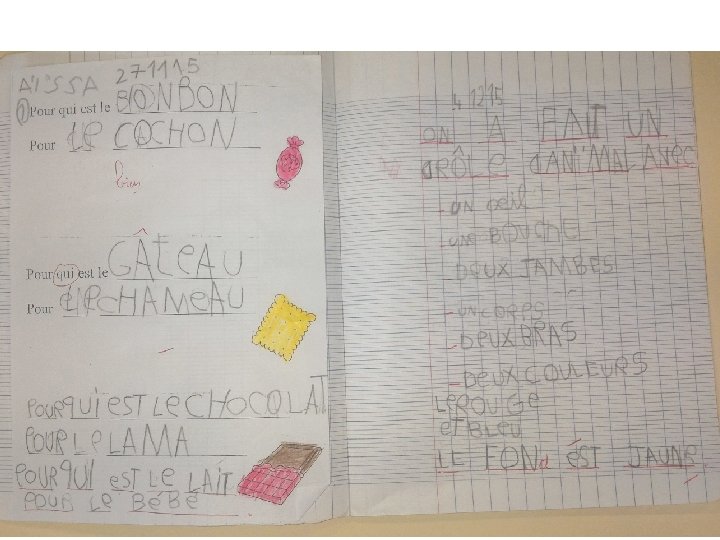 AÏSSA 27 11 15
① Pour qui est le BONBON
Pour Le COCHON
Bien
Pour qui est le GÂTeAU
Pour Le CHAMeAU
POURQUI eST Le CHOCOLAT
POUR Le LAMA
POURQUI eST Le LAIT
POUR Le BéBé
4 12 15
ON A FAIT UN
DRÔLe d'ANIMAL AVec
- UN oeil
- une BOUCHE
- DeUX JAMBES
- UN CORPS
- DeUX BRAS
- DeUX COULEURS
Le ROUGe
eT BLeU
LE FOND eST JAUNe